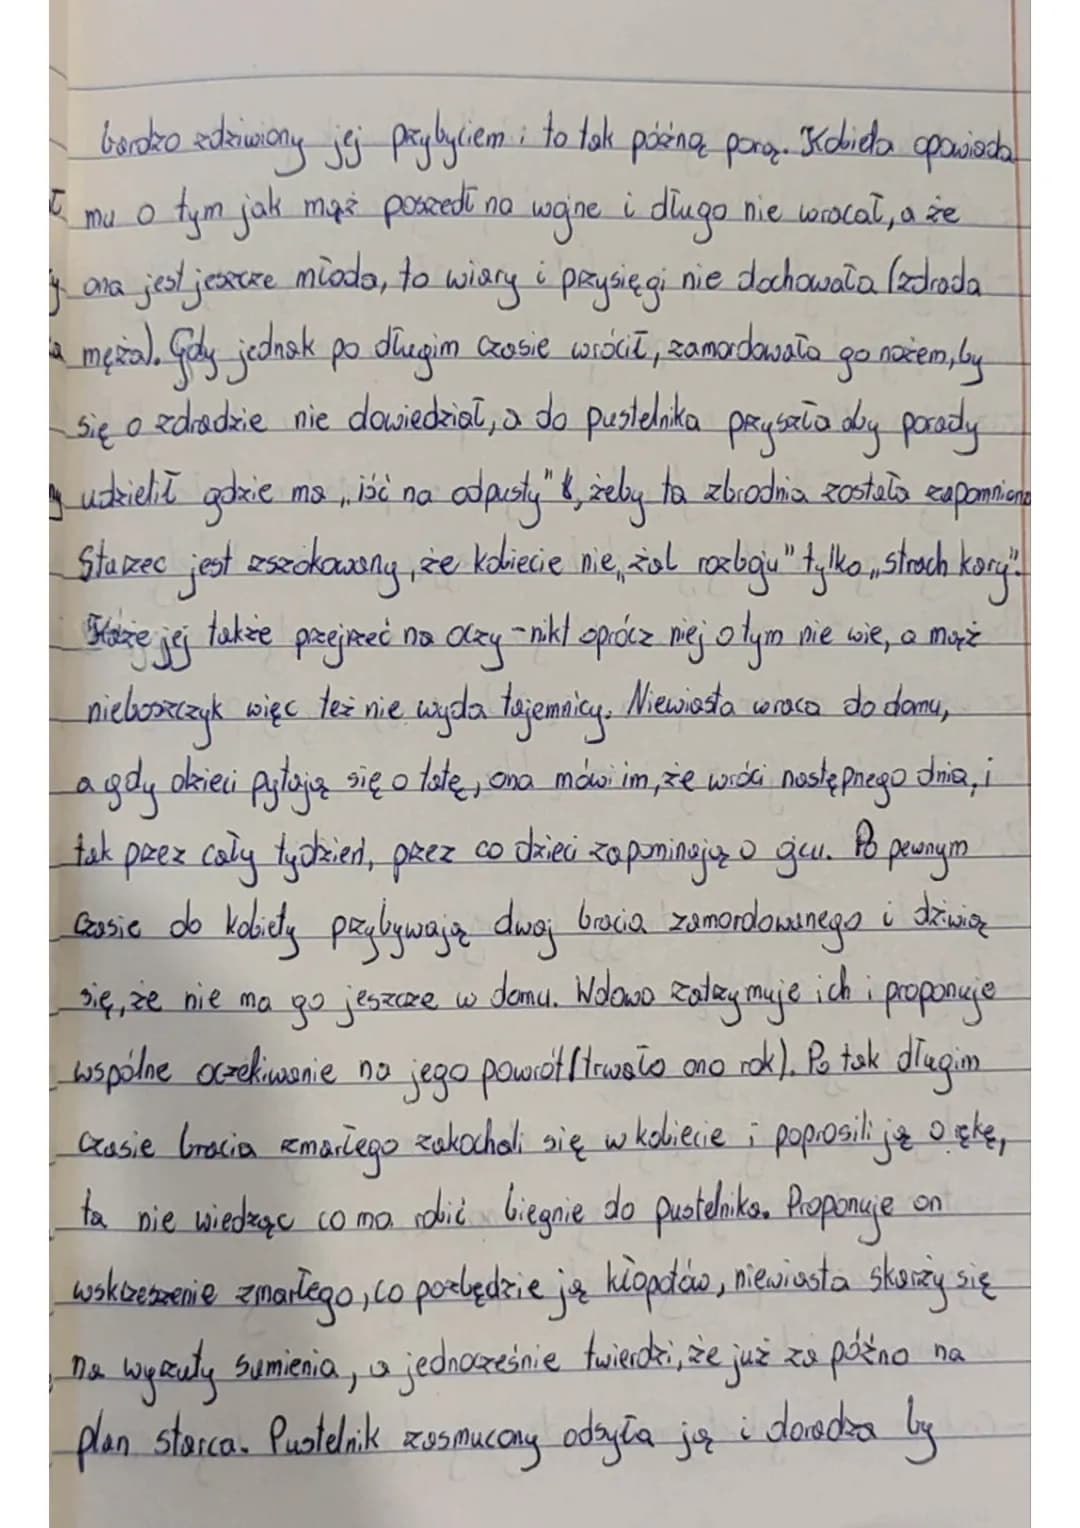 bardzo zdziwiony jej przybyciem i to tak późną porą. Kobieta opowiada
mu o tym jak mąż poszedł na wojne i długo nie wracał, a że
ona jest jeszcze młoda, to wiary i przysięgi nie dochowała (zdrada
męża). Gdy jednak po długim czasie wrócił, zamordowała go nożem, by
się o zdradzie nie dowiedział, a do pustelnika przyszła aby porady
udzielił gdzie ma „iść na odpusty", żeby ta zbrodnia została zapomniana
Starzec jest zszokowany, że kobiecie nie „żal rozboju" tylko „strach kary".
Każe jej także przejrzeć na oczy - nikt oprócz niej o tym nie wie, a mąż
nieboszczyk więc też nie wyda tajemnicy. Niewiasta wraca do domu,
a gdy dzieci pytają się o tatę, ona mówi im, że wróci następnego dnia, i
tak przez cały tydzień, przez co dzieci zapominają o ojcu. Po pewnym
czasie do kobiety przybywają dwaj bracia zamordowanego i dziwią
się, że nie ma go jeszcze w domu. Wdowa zatrzymuje ich i proponuje
wspólne oczekiwanie na jego powrót (trwało ono rok). Po tak długim
czasie bracia zmarłego zakochali się w kobiecie i poprosili ją o rękę,
ta nie wiedząc co ma robić biegnie do pustelnika. Proponuje on
wskrzeszenie zmarłego, co pozbędzie ją kłopotów, niewiasta skarży się
na wyrzuty sumienia, a jednocześnie twierdzi, że już za późno na
plan starca. Pustelnik zasmucony odsyła ją i doradza by